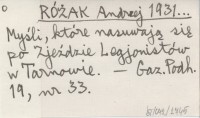 RÓŻAK Andrzej 1931...
Myśli, które nasuwają się
po Zjeździe Legjonistów
w Tarnowie. — Gaz. Podh.
19, nr 33.